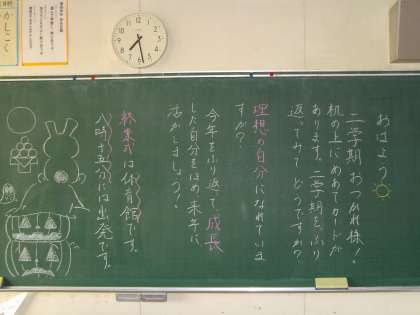 おはよう
二学期おつかれ様！
机の上にめあてカードが
あります。二学期をふり
返ってみてどうですか？
理想の自分になれていま
すか？
今年をふり返って成長
した自分をほめ来年に
活かしましょう！
終業式は体育館です。
八時十五分には出発です。